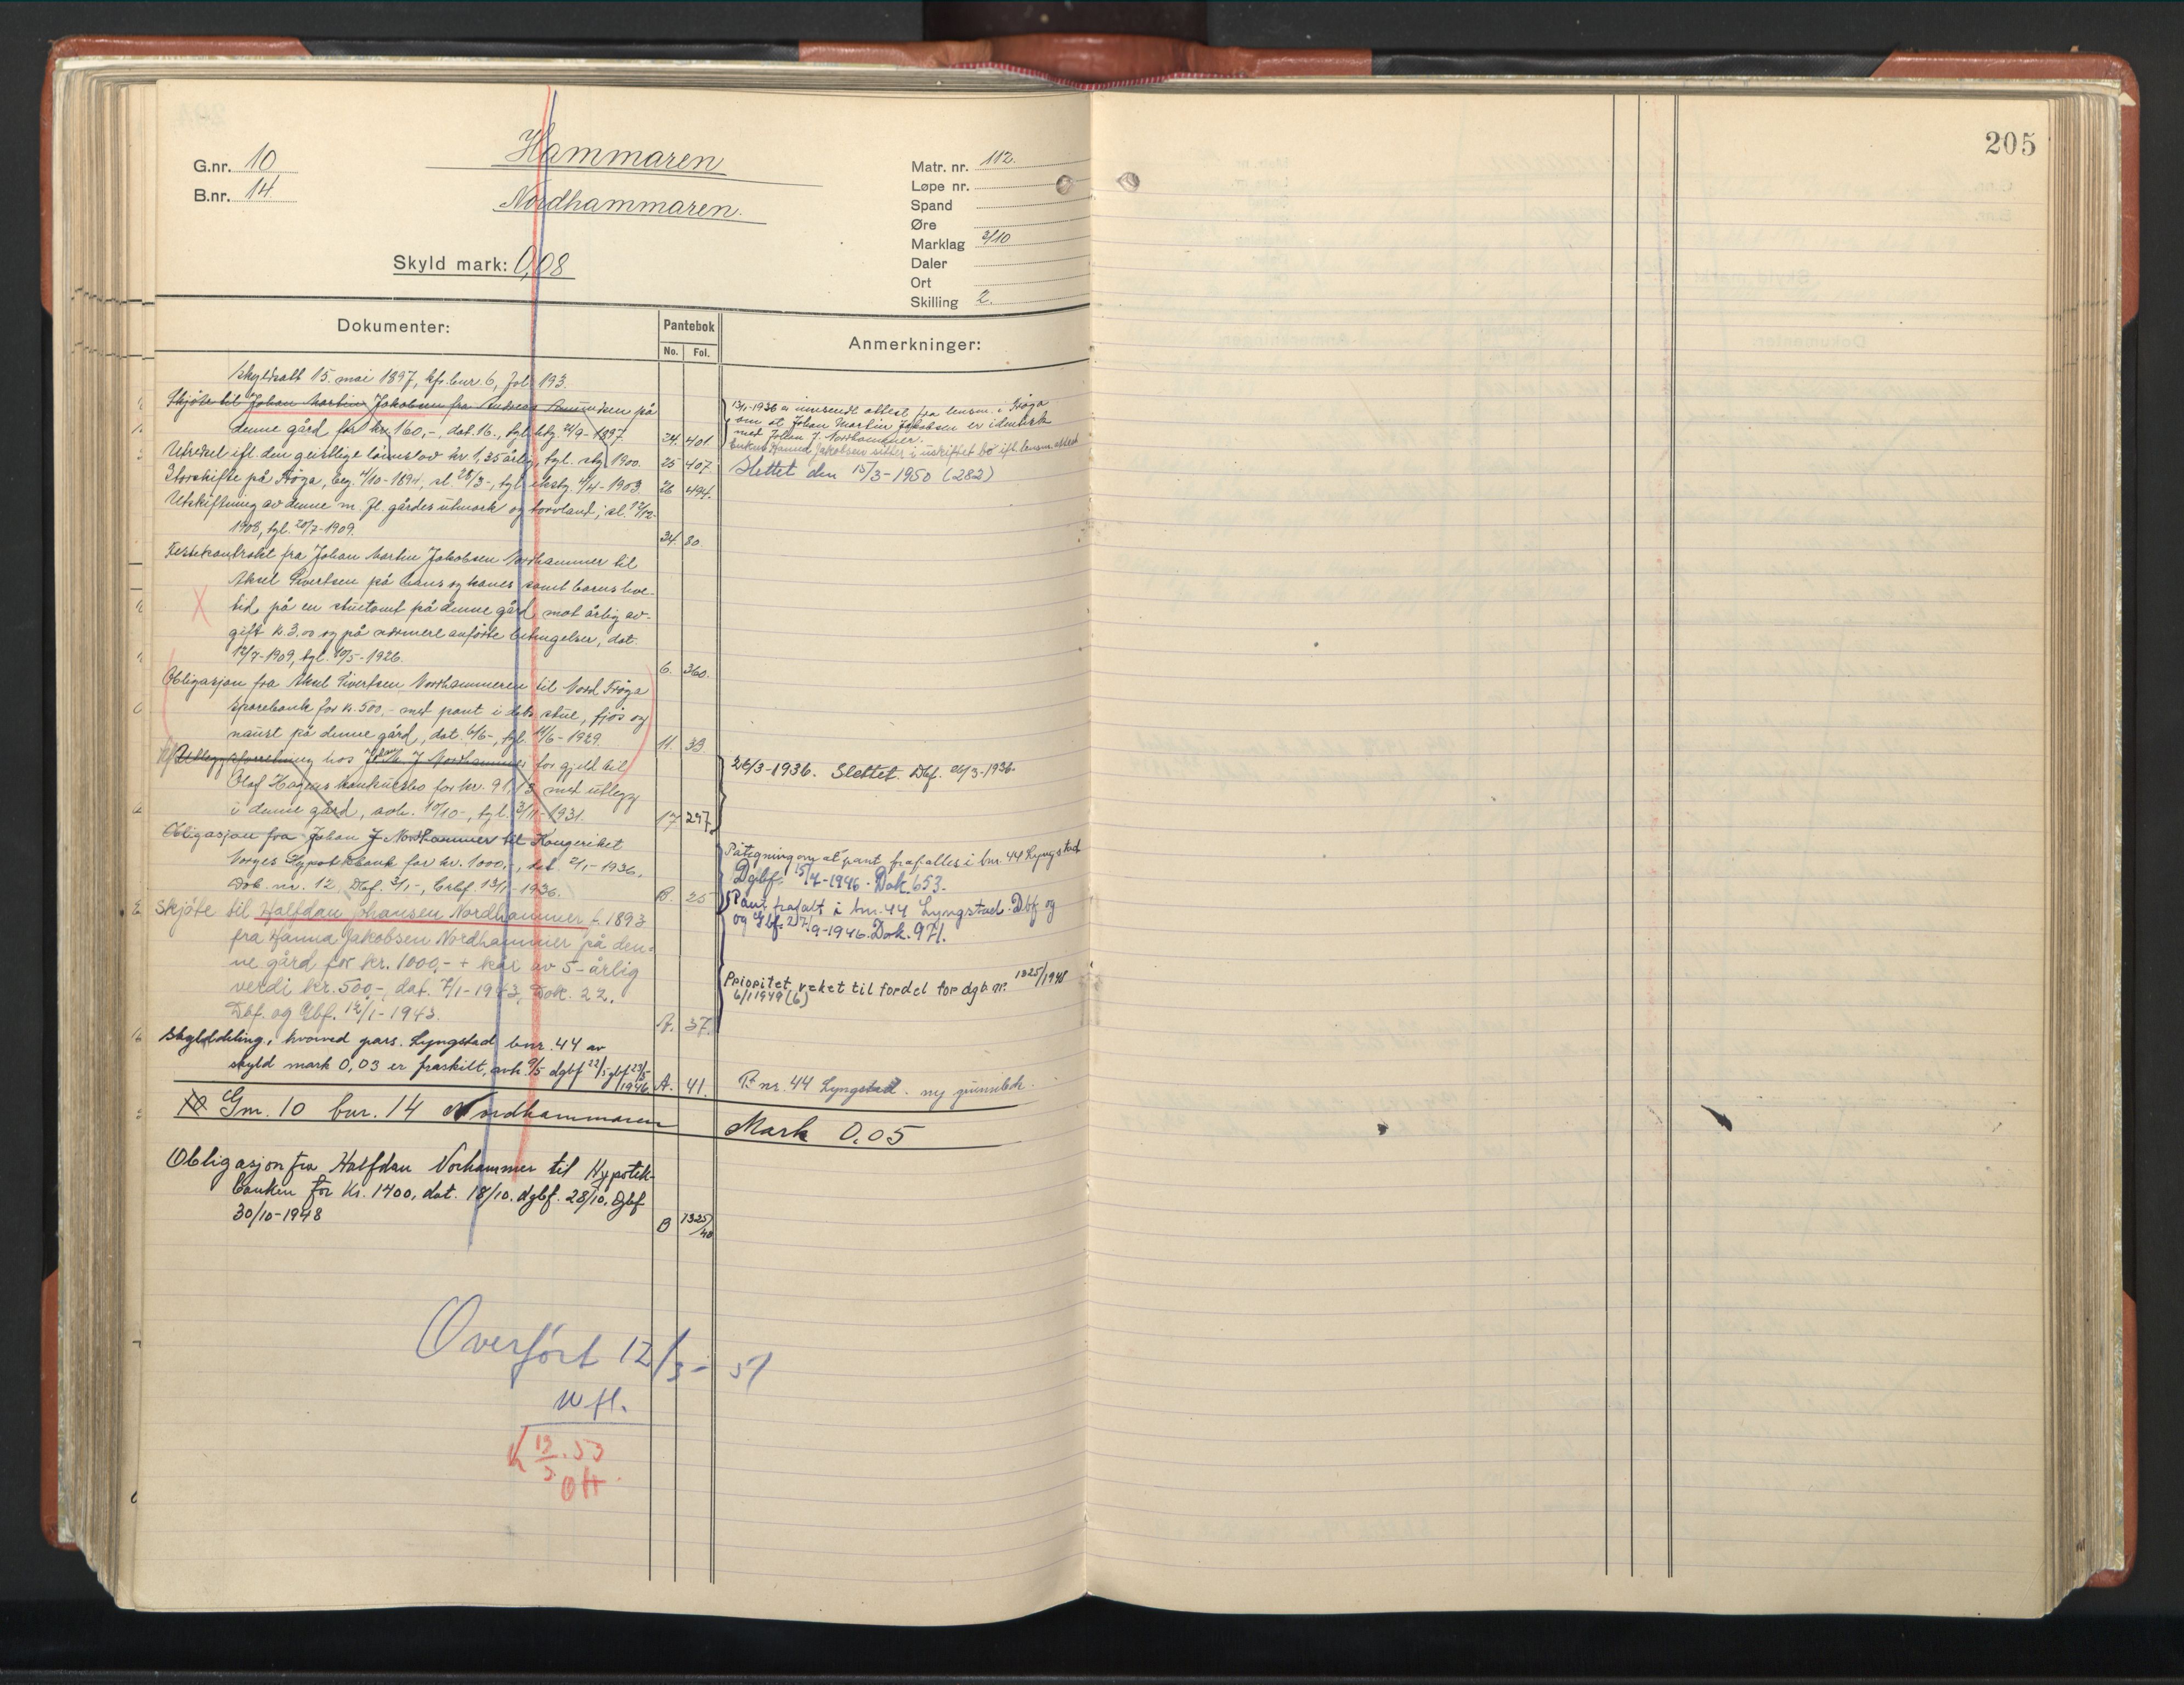 205
G.nr. 10
B.nr. 14
Hammaren
Nordhammaren.
Skyld mark: 0,08
Matr. nr. 112.
Løpe nr.
Spand
Øre
Marklag 2/10
Daler
Ort
Skilling 2.
Dokumenter:
Pantebok
No. Fol.
Anmerkninger:
Skyldsatt 15. mai 1897, bnr. 6, fol. 193.
Skjøte til Johan Martin Jakobsen fra Andreas Amundsen på
denne gård for kr. 160,-, dat. 16., tgl. 21/9-1897. 24. 401
Utredsel ifl. den geistlige lønnslov kr 1,35 årlig, tgl. 1900. 25 407
Storskifte på Frøga, beg. 4/10-1894, sl. 28/3-, tgl. 4/4-1903 26 494.
Utskiftning av denne m. fl. gårdes utmark og torvland, sl. 12/12-
1908, tgl. 20/7-1909. 34. 80
Festekontrakt fra Johan Martin Jakobsen Nordhammer til
Aksel Sivertsen på hans og kones samt barns leve-
tid på en stuetomt på denne gård mot årlig av-
gift k. 3.00 og på nærmere anførte betingelser, dat.
12/7-1909, tgl. 10/5-1926. 6. 360.
Obligasjon fra Aksel Sivertsen Nordhammeren til Nord Frøya
Sparebank for kr. 500,- med pant i dets stue, fjøs og
naust på denne gård, dat. 6/6-, tgl. 11/6-1929. 11. 39
Utleggsforretning hos Johan J. Nordhammer for gjeld til
Olaf Hagens konkursbo for kr. 91,13 med utlegg
i denne gård, avh. 10/10-, tgl. 3/11-1931. 17 297
Obligasjon fra Johan J. Nordhammer til Kongeriket
Norges Hypotekbank for kr. 1000,-, dat. 2/1-1936,
Dok. nr. 12, Dbf. 3/1-, Grbf. 13/1-1936. B. 25
Skjøte til Halfdan Johansen Nordhammer f. 1893
fra Hanna Jakobsen Nordhammer på den-
ne gård for kr. 1000,- + kår av 5-årlig
verdi kr. 500,-, dat. 7/1-1943, Dok. 22.
Dbf. og Gbf. 12/1-1943. A. 37.
Skylddeling, hvorved pars. Lyngstad bnr. 44 av
skyld mark 0,03 er fraskilt, avh. 9/5 dgbf 22/5 gbf 23/5-
1946 A. 41.
Gnr. 10 bnr. 14 Nordhammaren Mark 0.05
Obligasjon fra Halfdan Norhammer til Hypotek-
banken for kr. 1400, dat. 18/10. dgbf. 28/10. Gbf
30/10-1948 B 1325/48
13/1-1936 er innsendt attest fra lensm. i Frøya
om at Johan Martin Jakobsen er identisk
med Johan J. Nordhammer.
Enken Hanna Jakobsen sitter i uskiftet bo ifl. lensm. attest
Slettet den 15/3-1950 (282)
26/3-1936. Slettet. Dbf. 26/3-1936.
Påtegning om at pant frafalles i bnr. 44 Lyngstad
Dgbf. 15/7-1946. Dok. 653.
Pant frafalt i bnr. 44 Lyngstad. Dbf og
og Gbf. 27/9-1946. Dok. 971.
Prioritet veket til fordel for dgb. nr. 1325/1948
6/1 1949 (6)
Bnr. 44 Lyngstad. ny grunnbok.
Overført 12/3-51
13/3.53
OH.